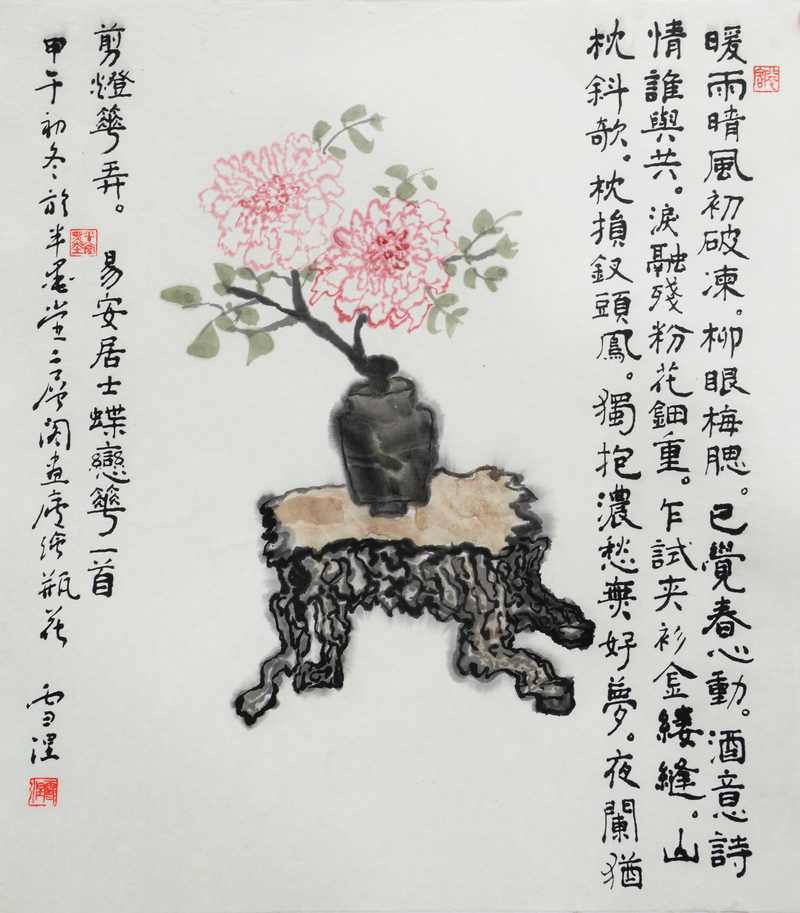 暖雨晴風初破凍。柳眼梅腮。已覺春心動。酒意詩
情誰與共。淚融殘粉花鈿重。乍試夾衫金縷縫。山
枕斜欹。枕損釵頭鳳。獨抱濃愁無好夢。夜闌猶
剪燈華弄。 易安居士蝶戀華一首
甲午初冬於半墨堂二層閣畫廬繪瓶花 雪涅